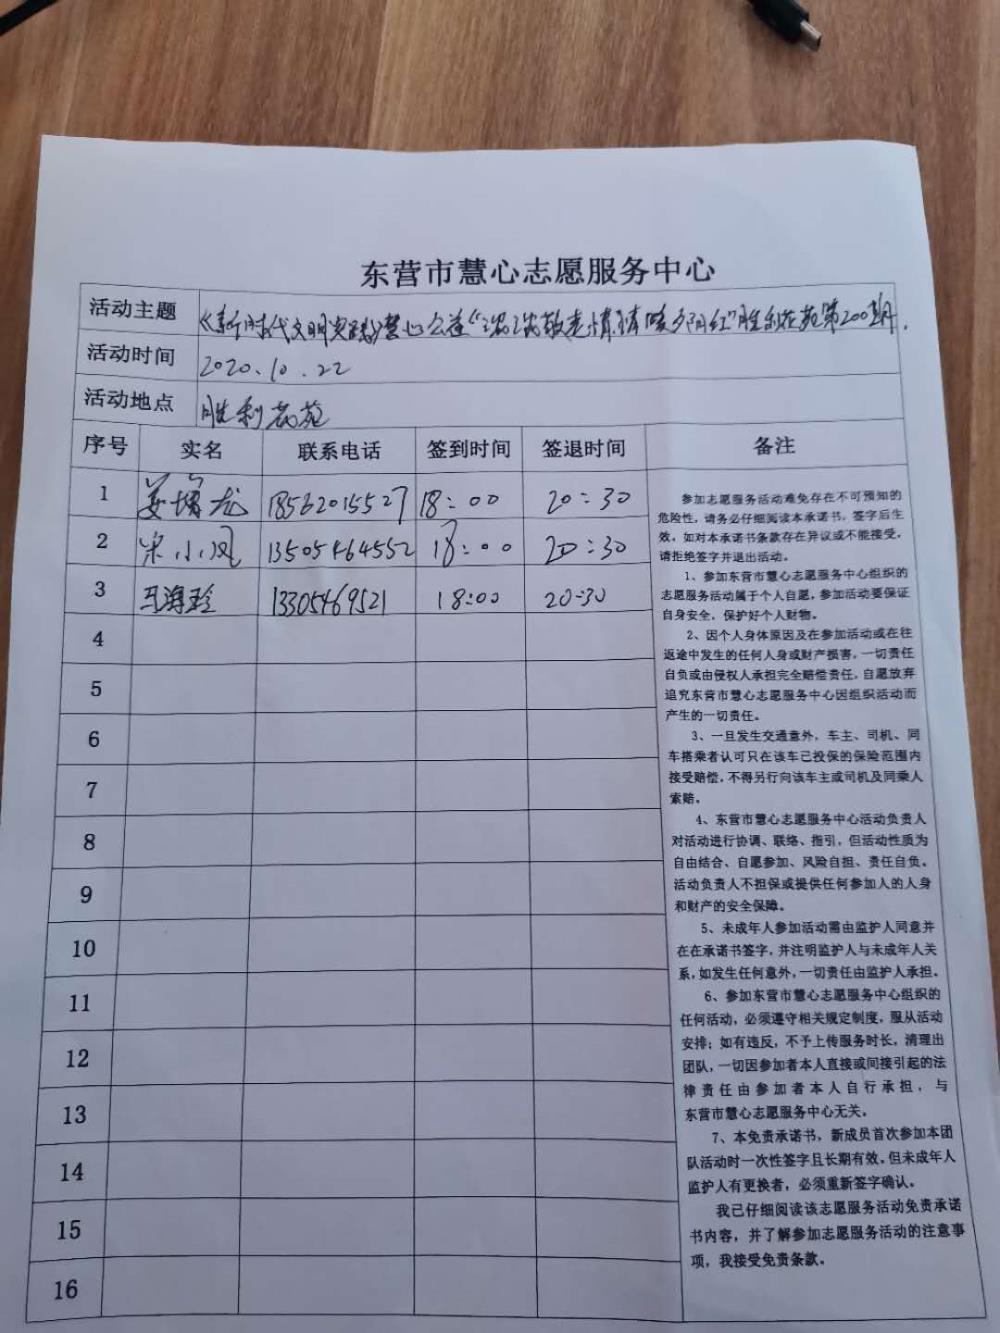 东营市慧心志愿服务中心
活动主题 《新时代文明实践》慧心公益“浓浓敬老情 情暖夕阳红”胜利花苑第200期.
活动时间 2020.10.22
活动地点 胜利花苑
序号 实名 联系电话 签到时间 签退时间 备注
1 姜增龙 18562015527 18:00 20:30
2 宋小凤 13505464552 18:00 20:30
3 马海珍 13305469521 18:00 20:30
4
5
6
7
8
9
10
11
12
13
14
15
16
参加志愿服务活动难免存在不可预知的
危险性，请务必仔细阅读本承诺书，签字后生
效，如对本承诺书条款存在异议或不能接受，
请拒绝签字并退出活动。
1、参加东营市慧心志愿服务中心组织的
志愿服务活动属于个人自愿，参加活动要保证
自身安全，保护好个人财物。
2、因个人身体原因及在参加活动或在往
返途中发生的任何人身或财产损害，一切责任
自负或由侵权人承担完全赔偿责任，自愿放弃
追究东营市慧心志愿服务中心因组织活动而
产生的一切责任。
3、一旦发生交通意外，车主、司机、同
车搭乘者认可只在该车已投保的保险范围内
接受赔偿，不得另行向该车主或司机及同乘人
索赔。
4、东营市慧心志愿服务中心活动负责人
对活动进行协调、联络、指引，但活动性质为
自由结合、自愿参加、风险自担、责任自负。
活动负责人不担保或提供任何参加人的人身
和财产的安全保障。
5、未成年人参加活动需由监护人同意并
在在承诺书签字，并注明监护人与未成年人关
系，如发生任何意外，一切责任由监护人承担。
6、参加东营市慧心志愿服务中心组织的
任何活动，必须遵守相关规定制度，服从活动
安排；如有违反，不予上传服务时长，清理出
团队，一切因参加者本人直接或间接引起的法
律责任由参加者本人自行承担，与
东营市慧心志愿服务中心无关。
7、本免责承诺书，新成员首次参加本团
队活动时一次性签字且长期有效。但未成年人
监护人有更换者，必须重新签字确认。
我已仔细阅读该志愿服务活动免责承诺
书内容，并了解参加志愿服务活动的注意事
项，我接受免责条款。